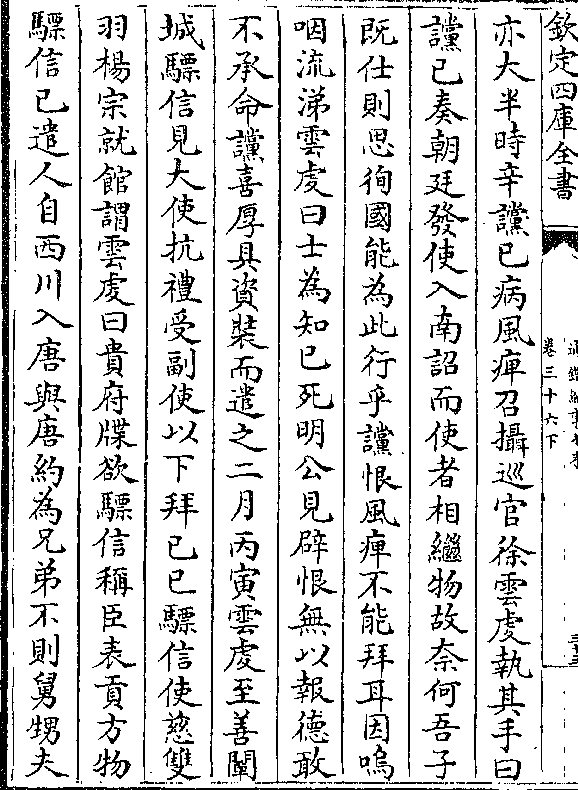 欽定四庫全書
卷三十六下
亦大半時辛讜已病風痺召攝巡官徐雲虔執其手曰
讜已奏朝廷發使入南詔而使者相繼物故奈何吾子
既仕則思徇國能為此行乎讜恨風痺不能拜耳因嗚
咽流涕雲虔曰士為知已死明公見辟恨無以報德敢
不承命讜喜厚具資裝而遣之二月丙寅雲虔至善闡
城驃信見大使抗禮受副使以下拜已已驃信使慈雙
羽楊宗就館謂雲虔曰貴府牒欲驃信稱臣奉表貢方物
驃信已遣人自西川入唐與唐約為兄弟不則舅甥夫